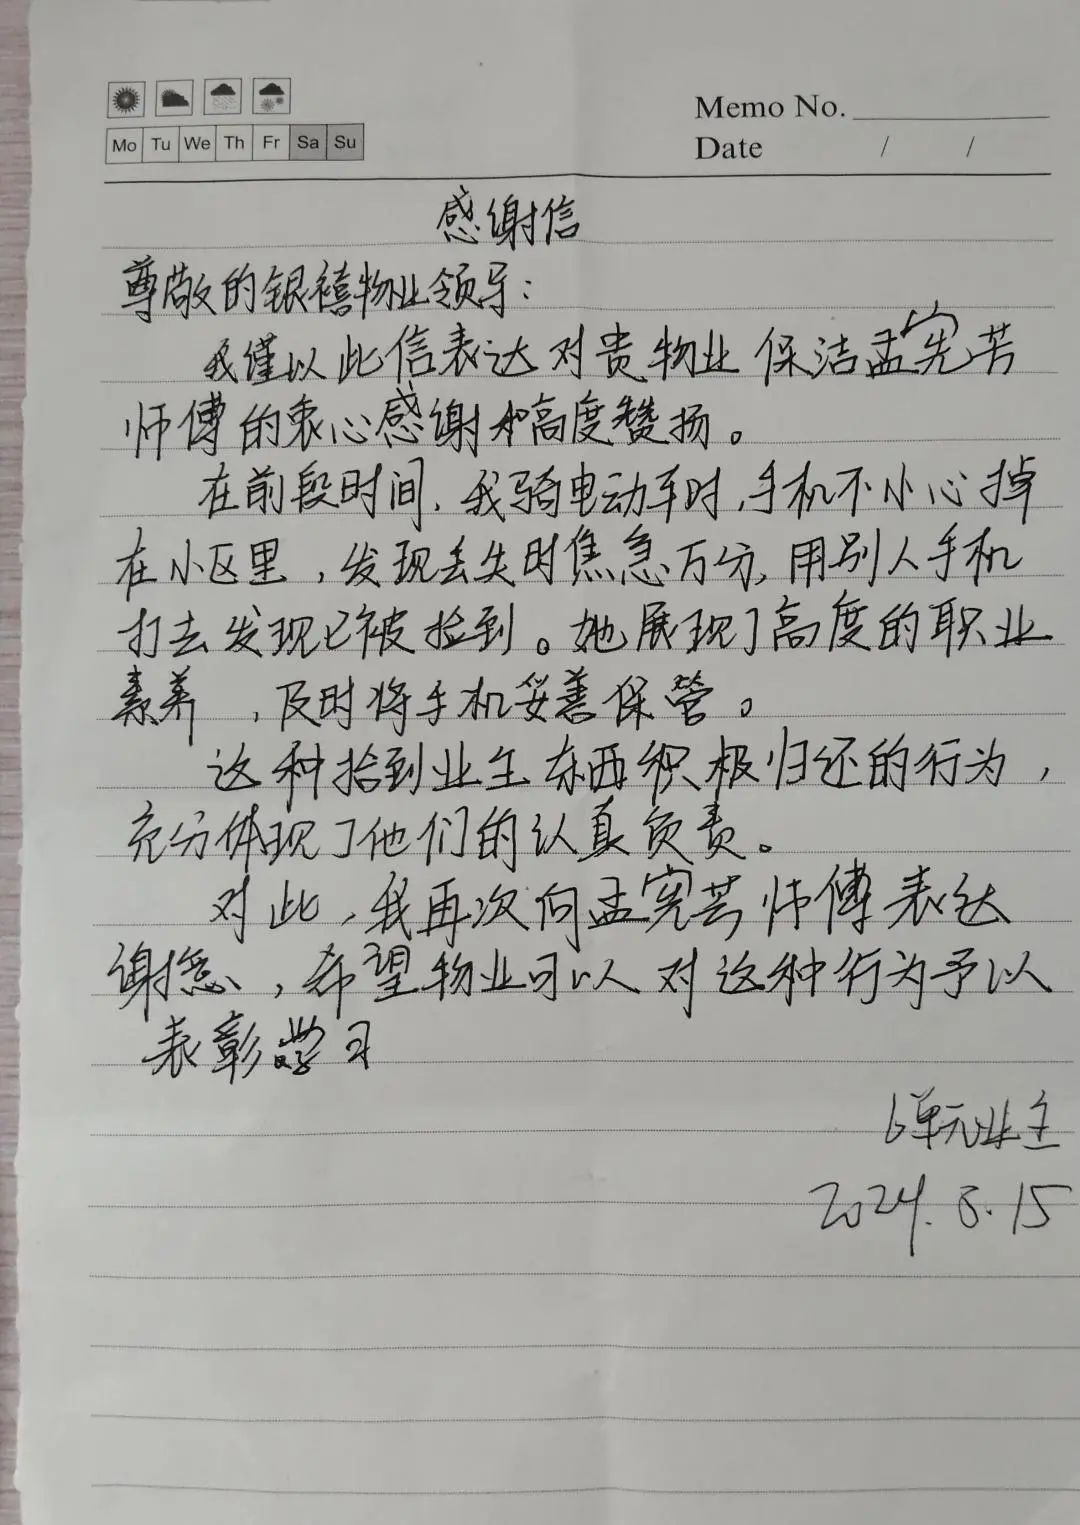 Mo Tu We Th Fr Sa Su
Memo No.
Date / /
感谢信
尊敬的银禧物业领导：
我谨以此信表达对贵物业保洁孟宪芳
师傅的衷心感谢和高度赞扬。
在前段时间，我骑电动车时，手机不小心掉
在小区里，发现丢失时焦急万分，用别人手机
打去发现已被捡到。她展现了高度的职业
素养，及时将手机妥善保管。
这种拾到业主东西积极归还的行为，
充分体现了他们的认真负责。
对此，我再次向孟宪芳师傅表达
谢意，希望物业可以对这种行为予以
表彰学习
6单元业主
2024.8.15